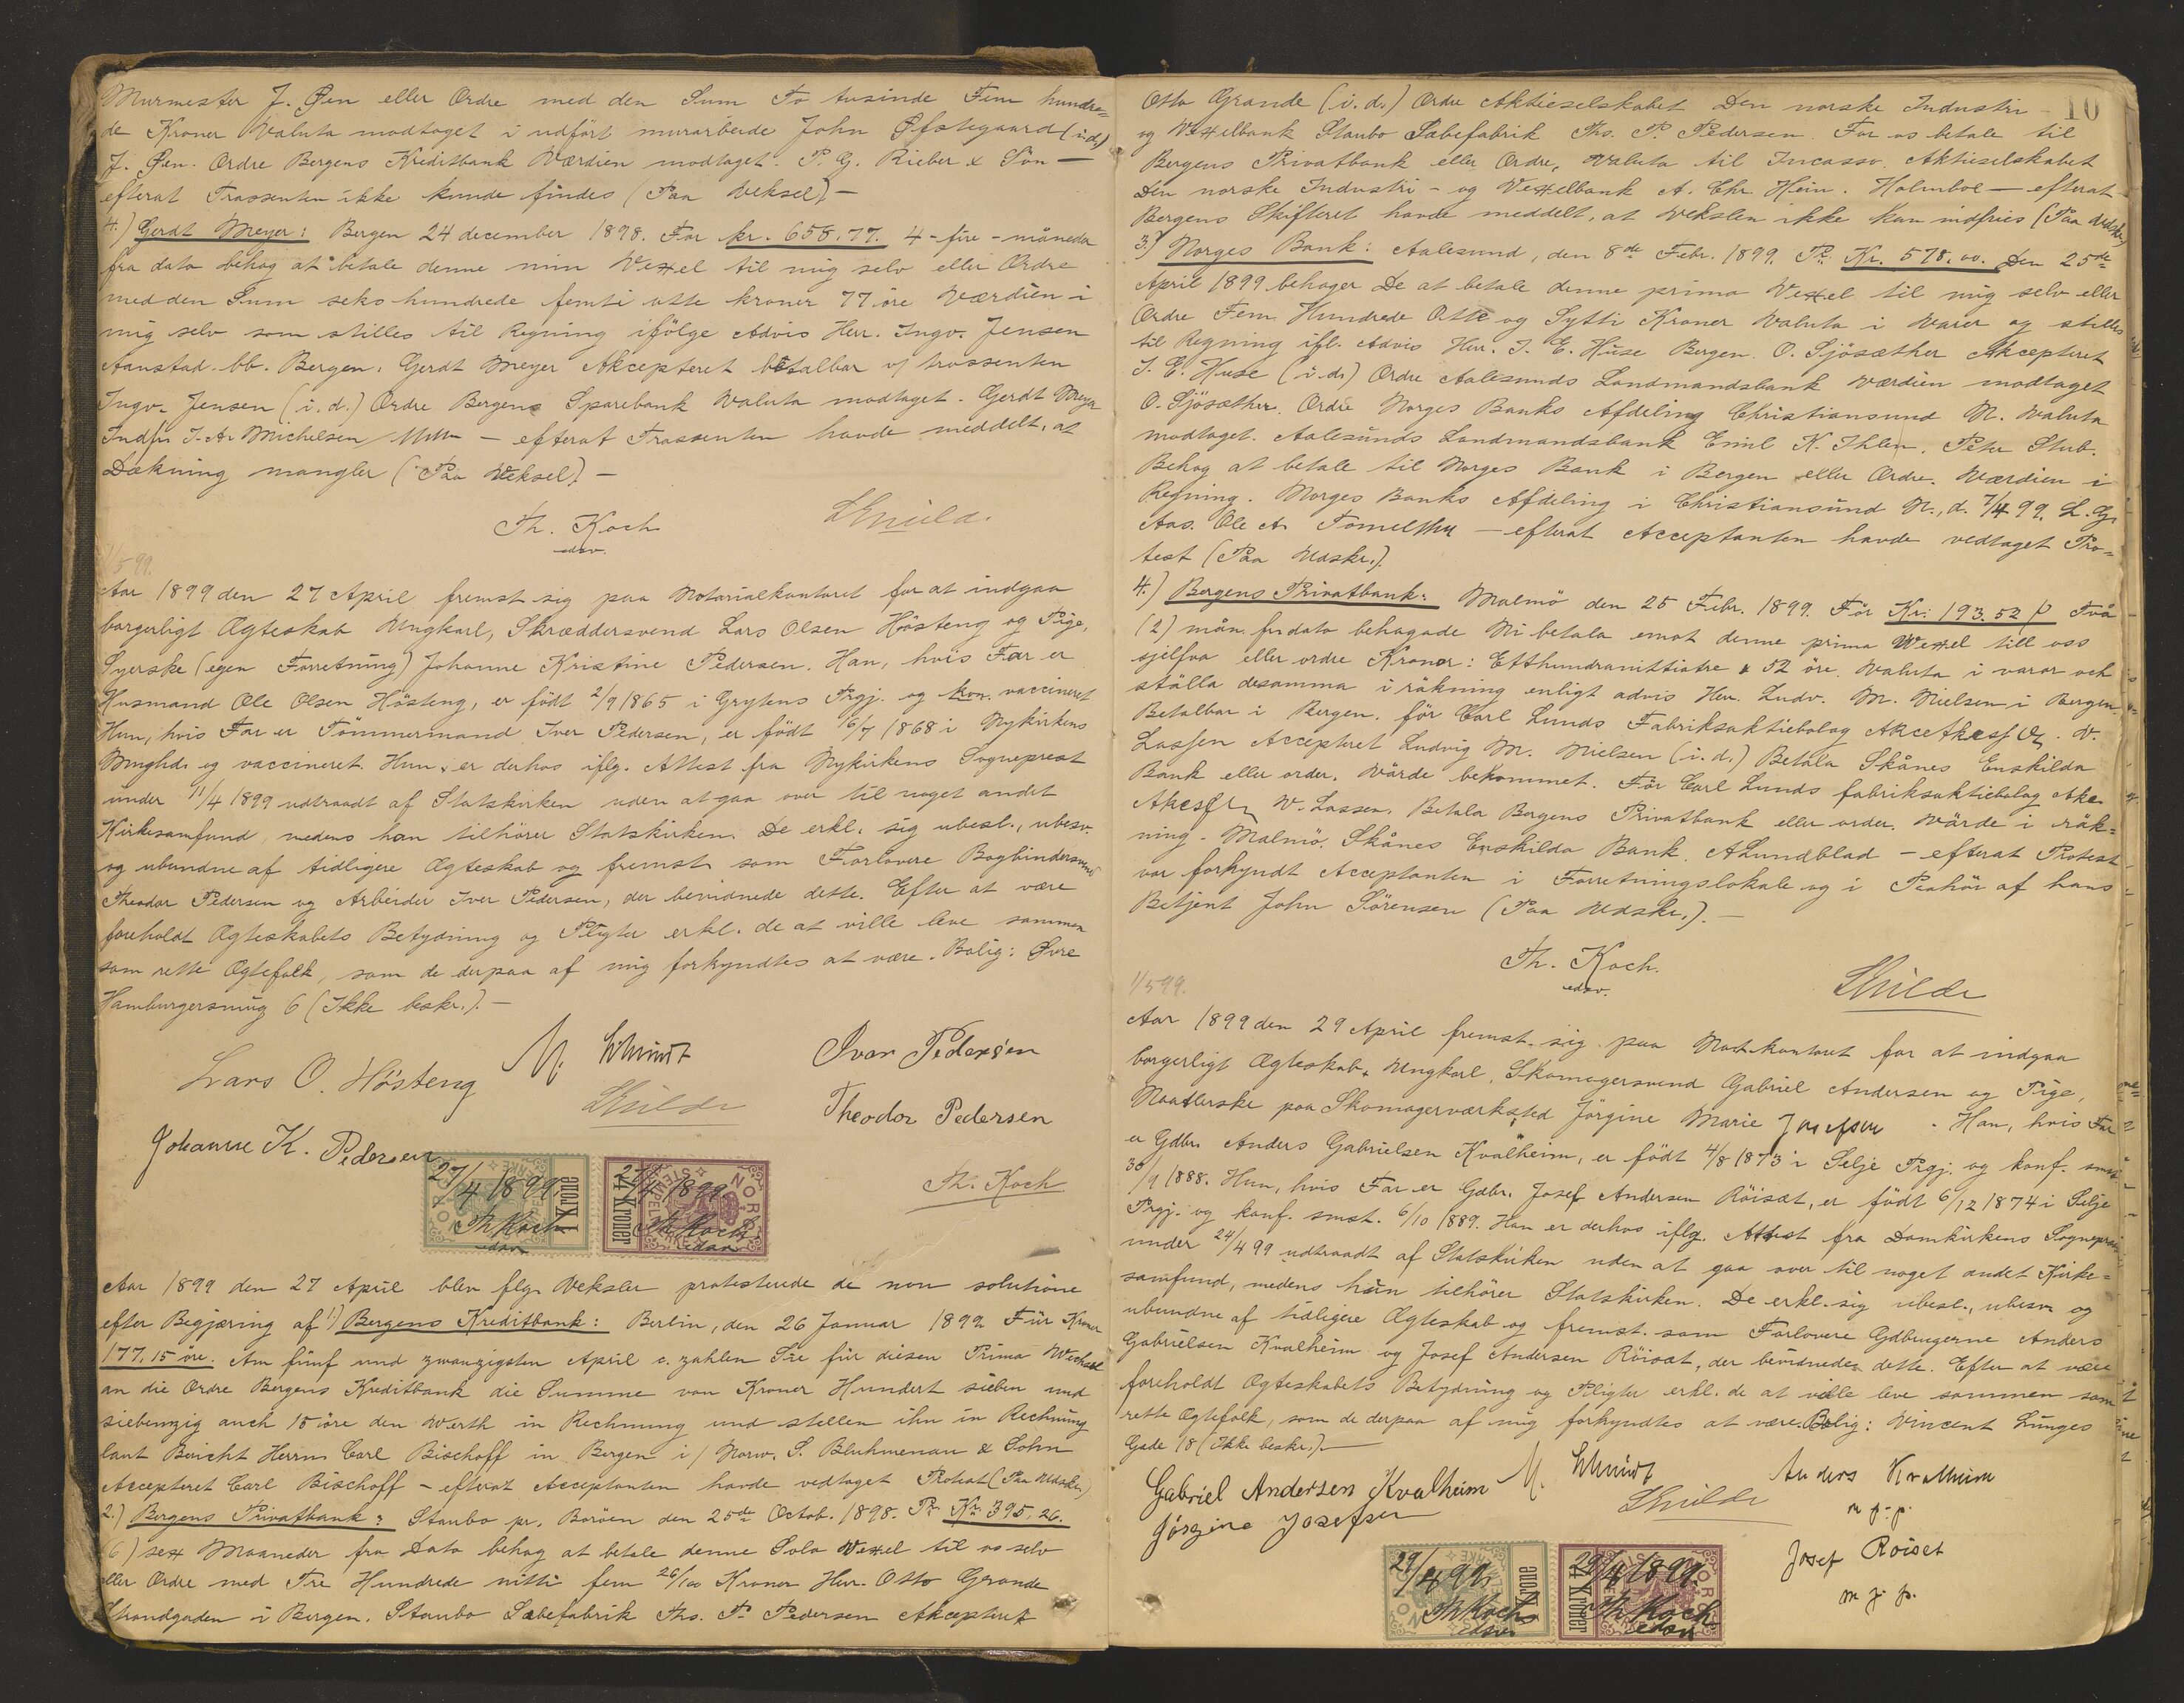 Murmester J. Øen eller Ordre med den Sum To tusinde Fem hundre=
de Kroner Valuta modtaget i udfört murarbeide John Øfstegaard (i.d.)
J. Øen. Ordre Bergens Kreditbank Værdien modtaget. P. G. Rieber & Sön —
efterat Trassenten ikke kunde findes (Paa Veksel) —
4.) Gerdt Meyer: Bergen 24 december 1898. For kr. 658.77. 4-fire-måneder
fra dato behag at betale denne min Vexel til mig selv eller Ordre
med den Sum seks hundrede femti otte kroner 77 öre Værdien i
mig selv som stilles til Regning ifölge Advis Herr. Ingv. Jensen
Aanstad. bb. Bergen. Gerdt Meyer Akcepteret betalbar v/ trassenten
Ingv. Jensen (i.d.) Ordre Bergens Sparebank Valuta modtaget. Gerdt Meyer
Indfr. J. A. Michelsen — efterat Trassenten havde meddelt, at
Dækning mangler (Paa Veksel). —
Th. Koch
edsv.
1/5 99.
Aar 1899 den 27 April fremst. sig paa Notarialkontoret for at indgaa
borgerligt Ægteskab Ungkarl, Skræddersvend Lars Olsen Hösteng og Pige,
Syerske (egen Forretning) Johanne Kristine Pedersen. Han, hvis Far er
Husmand Ole Olsen Hösteng, er födt 2/9 1865 i Grytens Prgj. og kon. vaccineret.
Hun, hvis Far er Tömmermand Iver Pedersen, er födt 16/7 1868 i Nykirkens
Mnghd. og vaccineret. Hun er derhos iflg. Attest fra Nykirkens Sogneprest
under 11/4 1899 udtraadt af Statskirken uden at gaa over til noget andet
Kirkesamfund, medens han tilhörer Statskirken. De erkl. sig ubesl., ubesv.
og ubundne af tidligere Ægteskab og fremst. som Forlovere Bogbindersvend
Theodor Pedersen og Arbeider Iver Pedersen, der bevidnede dette. Efter at være
foreholdt Ægteskabets Betydning og Pligter erkl. de at ville leve sammen
som rette Ægtefolk, som de derpaa af mig forkyndtes at være. Bolig: Øvre
Hamburgersmug 6 (Ikke beskr.). —
Lars O. Hösteng
Ivar Pedersen
Theodor Pedersen
Johanne K. Pedersen
Th. Koch
27/4 1899 Th Koch edsv
27/4 1899 Th Koch edsv
1 Krone
4 Kroner
Aar 1899 den 27 April blev flg. Veksler protesterede de non solutione
efter Begjæring af 1) Bergens Kreditbank: Berlin, den 26 Januar 1899 Für Kroner
177,15 öre. Am fünf und zwanzigsten April c. zahlen Sie für diesen Prima Wechsel
an die Ordre Bergens Kreditbank die Summe von Kroner Hundert sieben und
siebenzig auch 15 öre den Werth in Rechnung und stellen ihn in Rechnung
laut Bericht Herrn Carl Bischoff in Bergen i/ Norw. S. Bluhmenau & Sohn
Accepteret Carl Bischoff — efterat Acceptanten havde vedtaget Protest (Paa Udskr.)
2.) Bergens Privatbank: Staubo pr. Boröen den 25de Octob. 1898. Pr Kr 395,26.
(6) sex Maaneder fra Dato behag at betale denne Sola Vexel til os selv
eller Ordre med Tre Hundrede nitti fem 26/100 Kroner Herr. Otto Grande
Strandgaden i Bergen. Staubo Sæbefabrik Ths. P. Pedersen Akcepteret
10
Otto Grande (i.d.) Ordre Aktieselskabet Den norske Industri-
og Vexelbank Staubo Sæbefabrik Ths. P. Pedersen For os betale til
Bergens Privatbank eller Ordre, Valuta til Incasso. Aktieselskabet
Den norske Industri- og Vexelbank A. Chr. Hein. Holmboe — efterat
Bergens Skifteret havde meddelt, at Vekslen ikke kan indfries (Paa Udskr.)
3.) Norges Bank: Aalesund, den 8de Febr. 1899. Pr. Kr. 578.00. Den 25de
April 1899 behager De at betale denne prima Vexel til mig selv eller
Ordre Fem Hundrede Otte og Sytti Kroner Valuta i Varer og stilles
til Regning ifl. Advis Herr. J. E. Huse Bergen. O. Sjösæther Akcepteret
J. E. Huse (i.d.) Ordre Aalesunds Landmandsbank Værdien modtaget
O. Sjösæther. Ordre Norges Banks Afdeling Christiansund N. Valuta
modtaget. Aalesunds Landmandsbank Emil K. Ihlen. Peter Stub.
Behag at betale til Norges Bank i Bergen eller Ordre. Værdien i
Regning. Norges Banks Afdeling i Christiansund N., d. 7/4 99. L. G.
Aas. Ole A. — efterat Acceptanten havde vedtaget Pro=
test (Paa Udskr.)
4.) Bergens Privatbank: Malmö den 25 Febr. 1899. För Kr: 193.52 p Två
(2) mån. fr. dato behagade Ni betala emot denne prima Wexel till oss
sjelfva eller ordre Kronor: Etthundranittiotre & 52 öre. Valuta i varor och
ställa desamma i räkning enligt advis Herr. Ludv. M. Nielsen i Bergen
Betalbar i Bergen. för Carl Lunds Fabriksaktiebolag V.
Lassen Accepteret Ludvig M. Nielsen (i.d.) Betala Skånes Enskilda
Bank eller order. Värde bekommet. För Carl Lunds fabriksaktiebolag
V. Lassen. Betala Bergens Privatbank eller order. Värde i räk=
ning. Malmö. Skånes Enskilda Bank. A Lundblad — efterat Protest
var forkyndt Acceptanten i Forretningslokale og i Paahör af hans
Betjent John Sörensen (Paa Udskr.). —
Th. Koch.
edsv.
1/5 99.
Aar 1899 den 29 April fremst. sig paa Not.kontoret for at indgaa
borgerligt Ægteskab. Ungkarl, Skomagersvend Gabriel Andersen og Pige,
Naatlerske paa Skomagerværksted Jörgine Marie Josefsen. Han, hvis Far
er Gdbr. Anders Gabrielsen Kvalheim, er födt 4/8 1873 i Selje Prgj. og konf. smst.
30/9 1888. Hun, hvis Far er Gdbr. Josef Andersen Röisæt, er födt 6/12 1874 i Selje
Prgj. og konf. smst. 6/10 1889. Han er derhos iflg. Attest fra Domkirkens Sogneprest
under 24/4 99 udtraadt af Statskirken uden at gaa over til noget andet Kirke=
samfund, medens hun tilhörer Statskirken. De erkl. sig ubesl., ubesv. og
ubundne af tidligere Ægteskab og fremst. som Forlovere Gdbrugerne Anders
Gabrielsen Kvalheim og Josef Andersen Röisæt, der bevidnede dette. Efter at være
foreholdt Ægteskabets Betydning og Pligter erkl. de at ville leve sammen som
rette Ægtefolk, som de derpaa af mig forkyndtes at være. Bolig: Vincent Lunges
Gade 18 (Ikke beskr.). —
Gabriel Andersen Kvalheim
Anders Kvalheim
m. p. p.
Jörgine Josefsen
Josef Röiset
m. p. p.
29/4 99. Th Koch edsv
29/4 1899. Th Koch edsv
1 Krone
4 Kroner